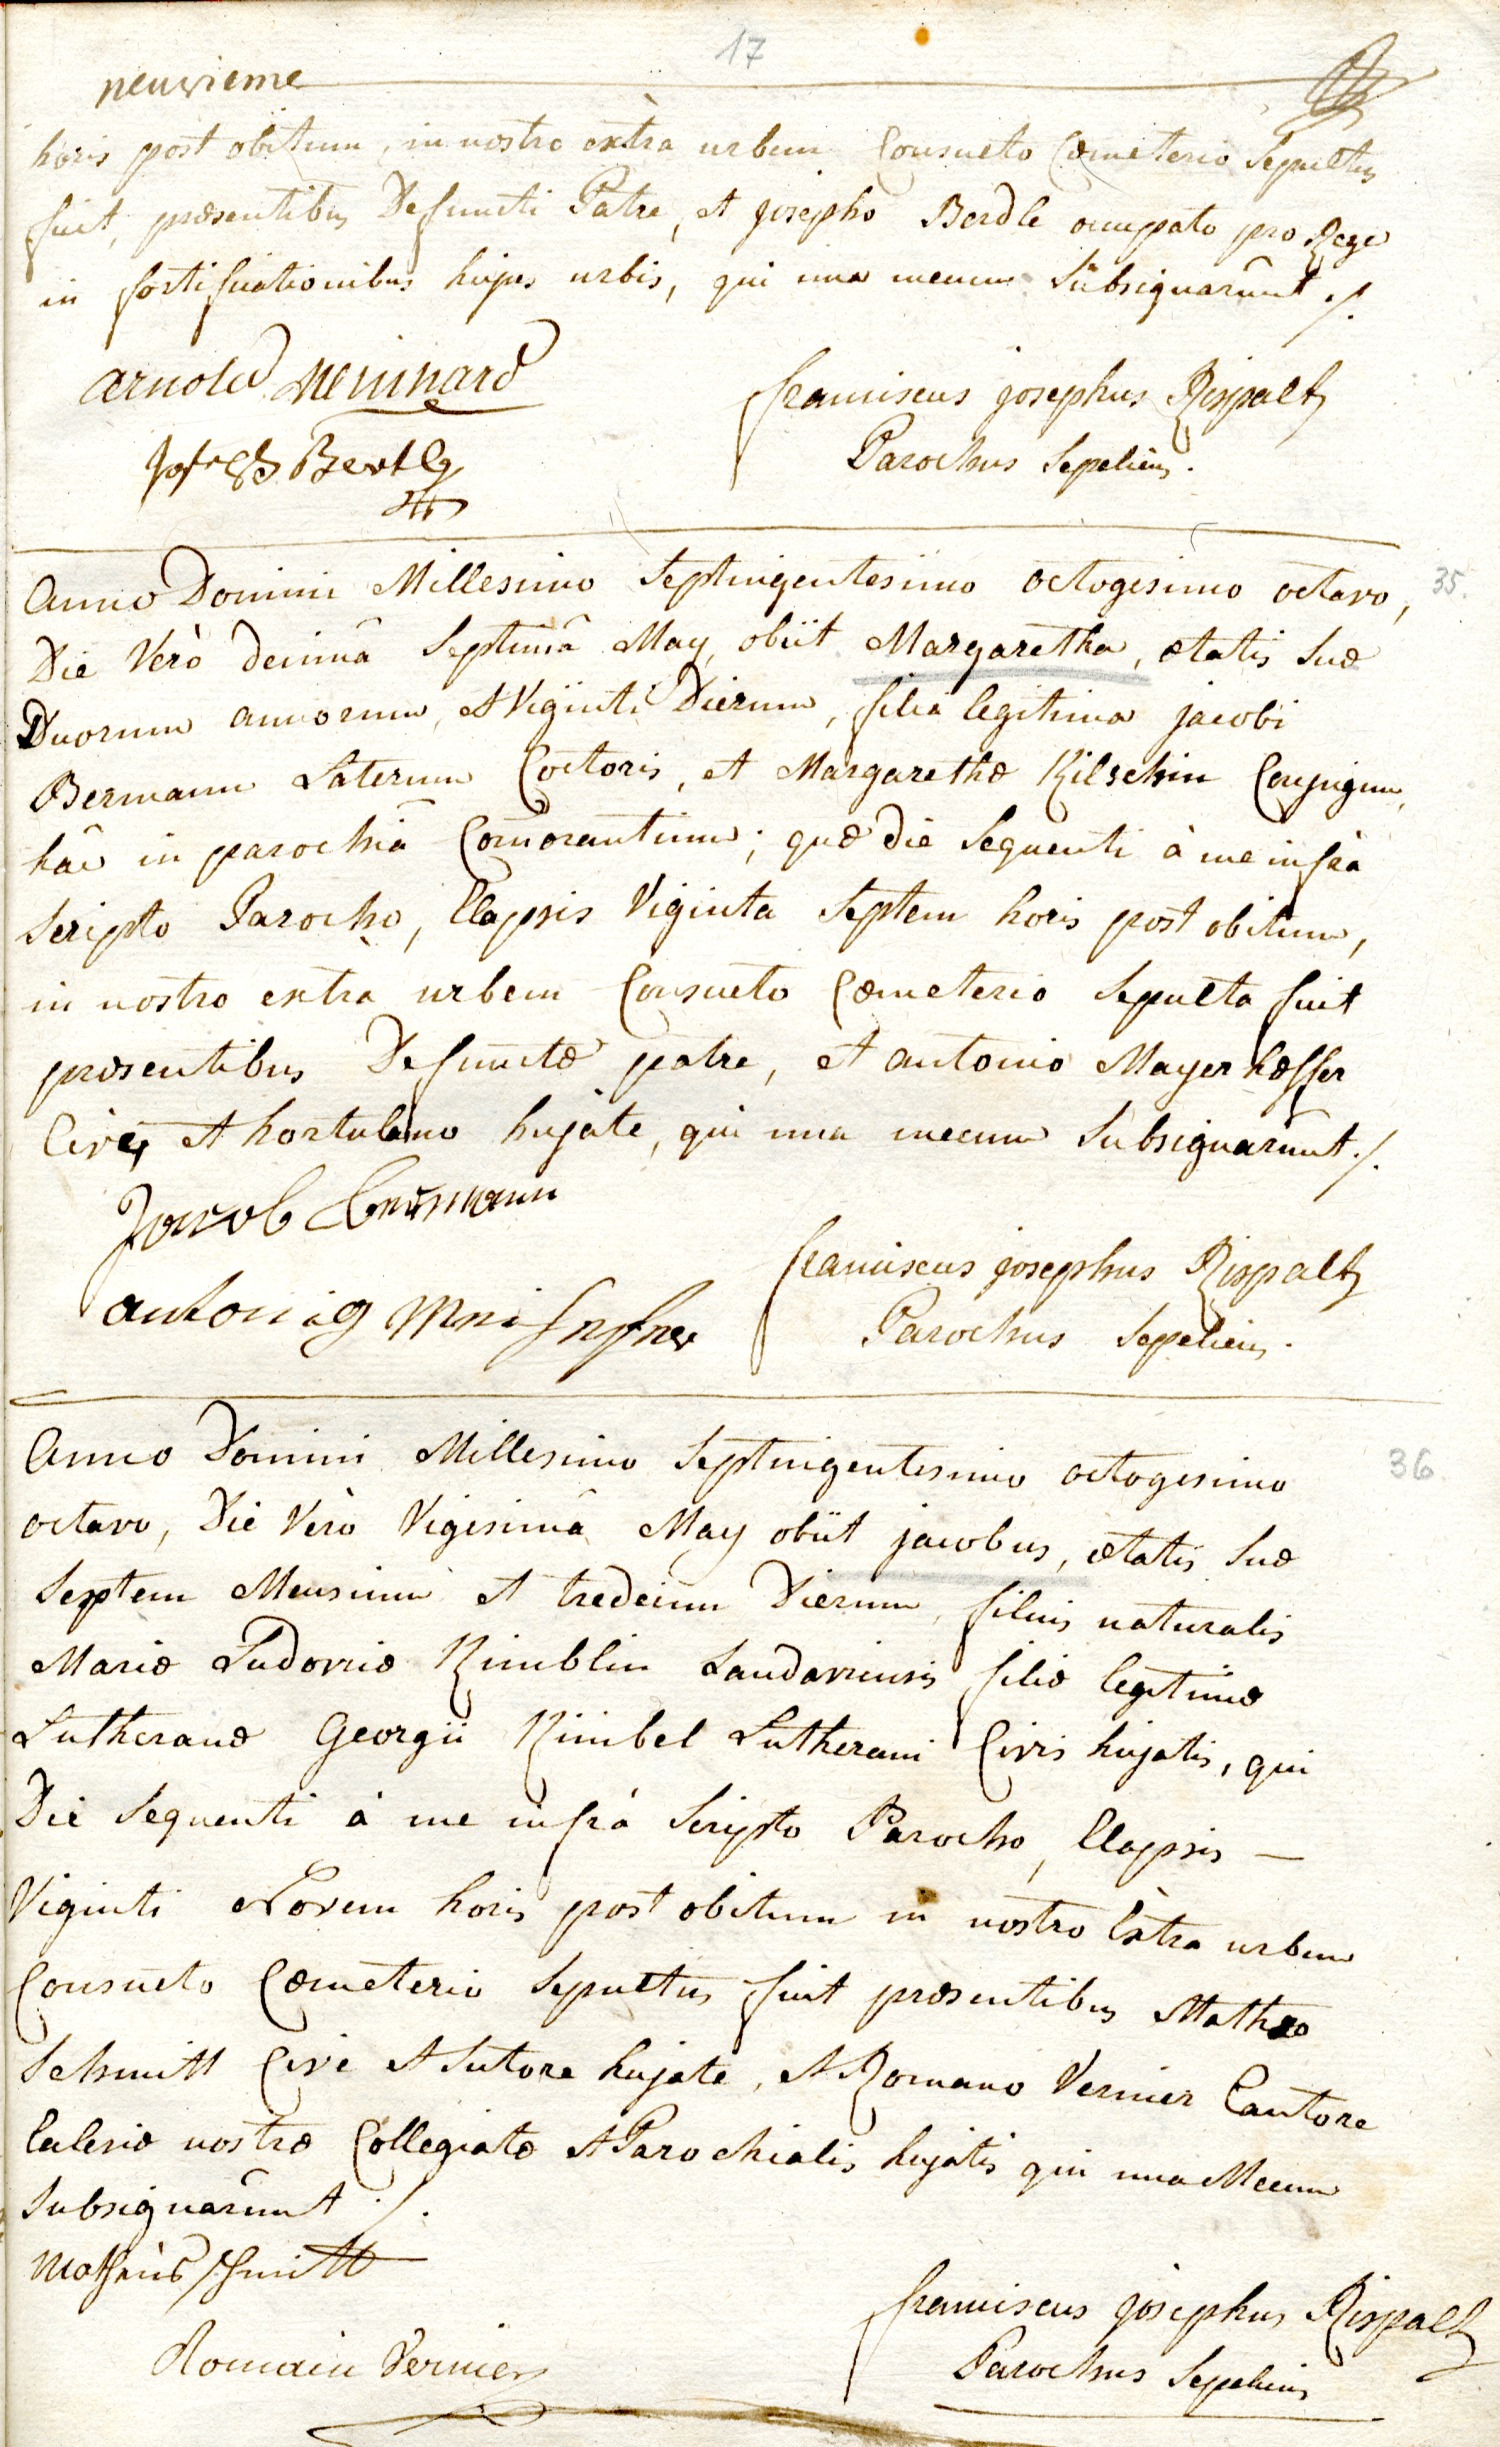 17
neuvieme
horis post obitum, in nostro extrà urbem Consueto Cœmeterio Sepultus
fuit, præsentibus Defuncti Patre, et josepho Berdle occupato pro Rege
in fortificationibus hujus urbis, qui una mecum Subsignarunt ./.
arnold meinhard
franciscus josephus Rispalt
Joseph Bertle
Parochus Sepeliens.
Anno Domini Millesimo Septingentesimo octogesimo octavo,
35.
Die Verò decimâ Septimâ May, obiit Margaretha, ætatis Suæ
Duorum annorum, et Viginti Dierum, filia legitima jacobi
Bermann Laterum Coctoris, et Margarethæ Kilschin Conjugum,
hâc in parochiâ Comorantium; quæ die Sequenti à me infrà
Scripto Parocho, Elapsis Viginta Septem horis post obitum,
in nostro extrà urbem Consueto Cœmeterio Sepulta fuit
præsentibus Defunctæ patre, et antonio Mayerhœffer
Cive et hortulano hujate, qui una mecum Subsignarunt ./.
Jacob Bermann
franciscus josephus Rispalt
antoni
Parochus Sepeliens.
Anno Domini Millesimo Septingentesimo octogesimo
36
octavo, Die Verò Vigesimâ May obiit jacobus, ætatis Suæ
Septem Mensium et tredecim Dierum, filius naturalis
Mariæ Ludovicæ Kimblin Landaviensis filiæ legitimæ
Lutheranæ Georgii Kimbel Lutherani Civis hujatis, qui
Die Sequenti à me infrà Scripto Parocho, Elapsis —
Viginti Novem horis post obitum in nostro Extrà urbem
Consueto Cœmeterio Sepultus fuit præsentibus Mathæo
Schmitt Cive et Sutore hujate, et Romano Vernier Cantore
Ecclesiæ nostræ Collegiatæ et Parochialis hujatis qui una Mecum
Subsignarunt ./.
Matheus Schmitt
franciscus josephus Rispalt
Romain Vernier
Parochus Sepeliens